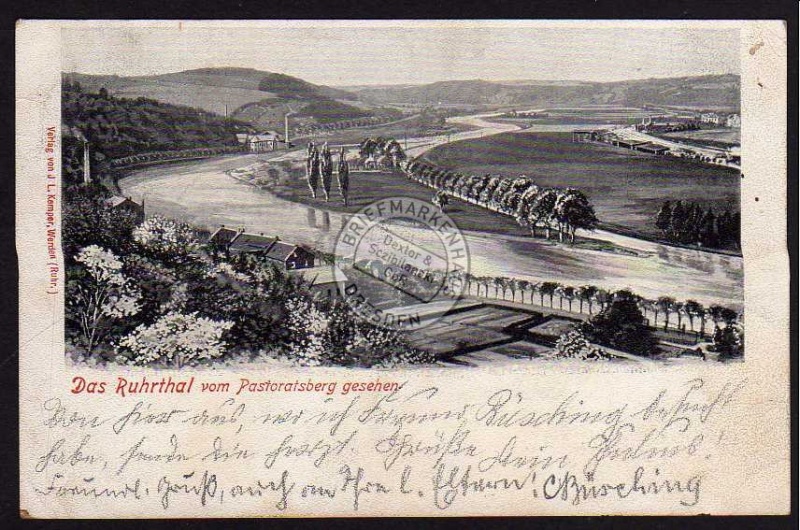 Verlag von J. L. Kemper, Werden (Ruhr.)
BRIEFMARKENHAUS
Dexter &
Sczihilanski
GbR
DRESDEN
Das Ruhrthal vom Pastoratsberg gesehen.
Von hier aus, wo ich Freund Büsching besucht
habe, sende die herzl. Grüße Dein Paulus!
Freundl. Gruß, auch an Ihre l. Eltern! Büsching